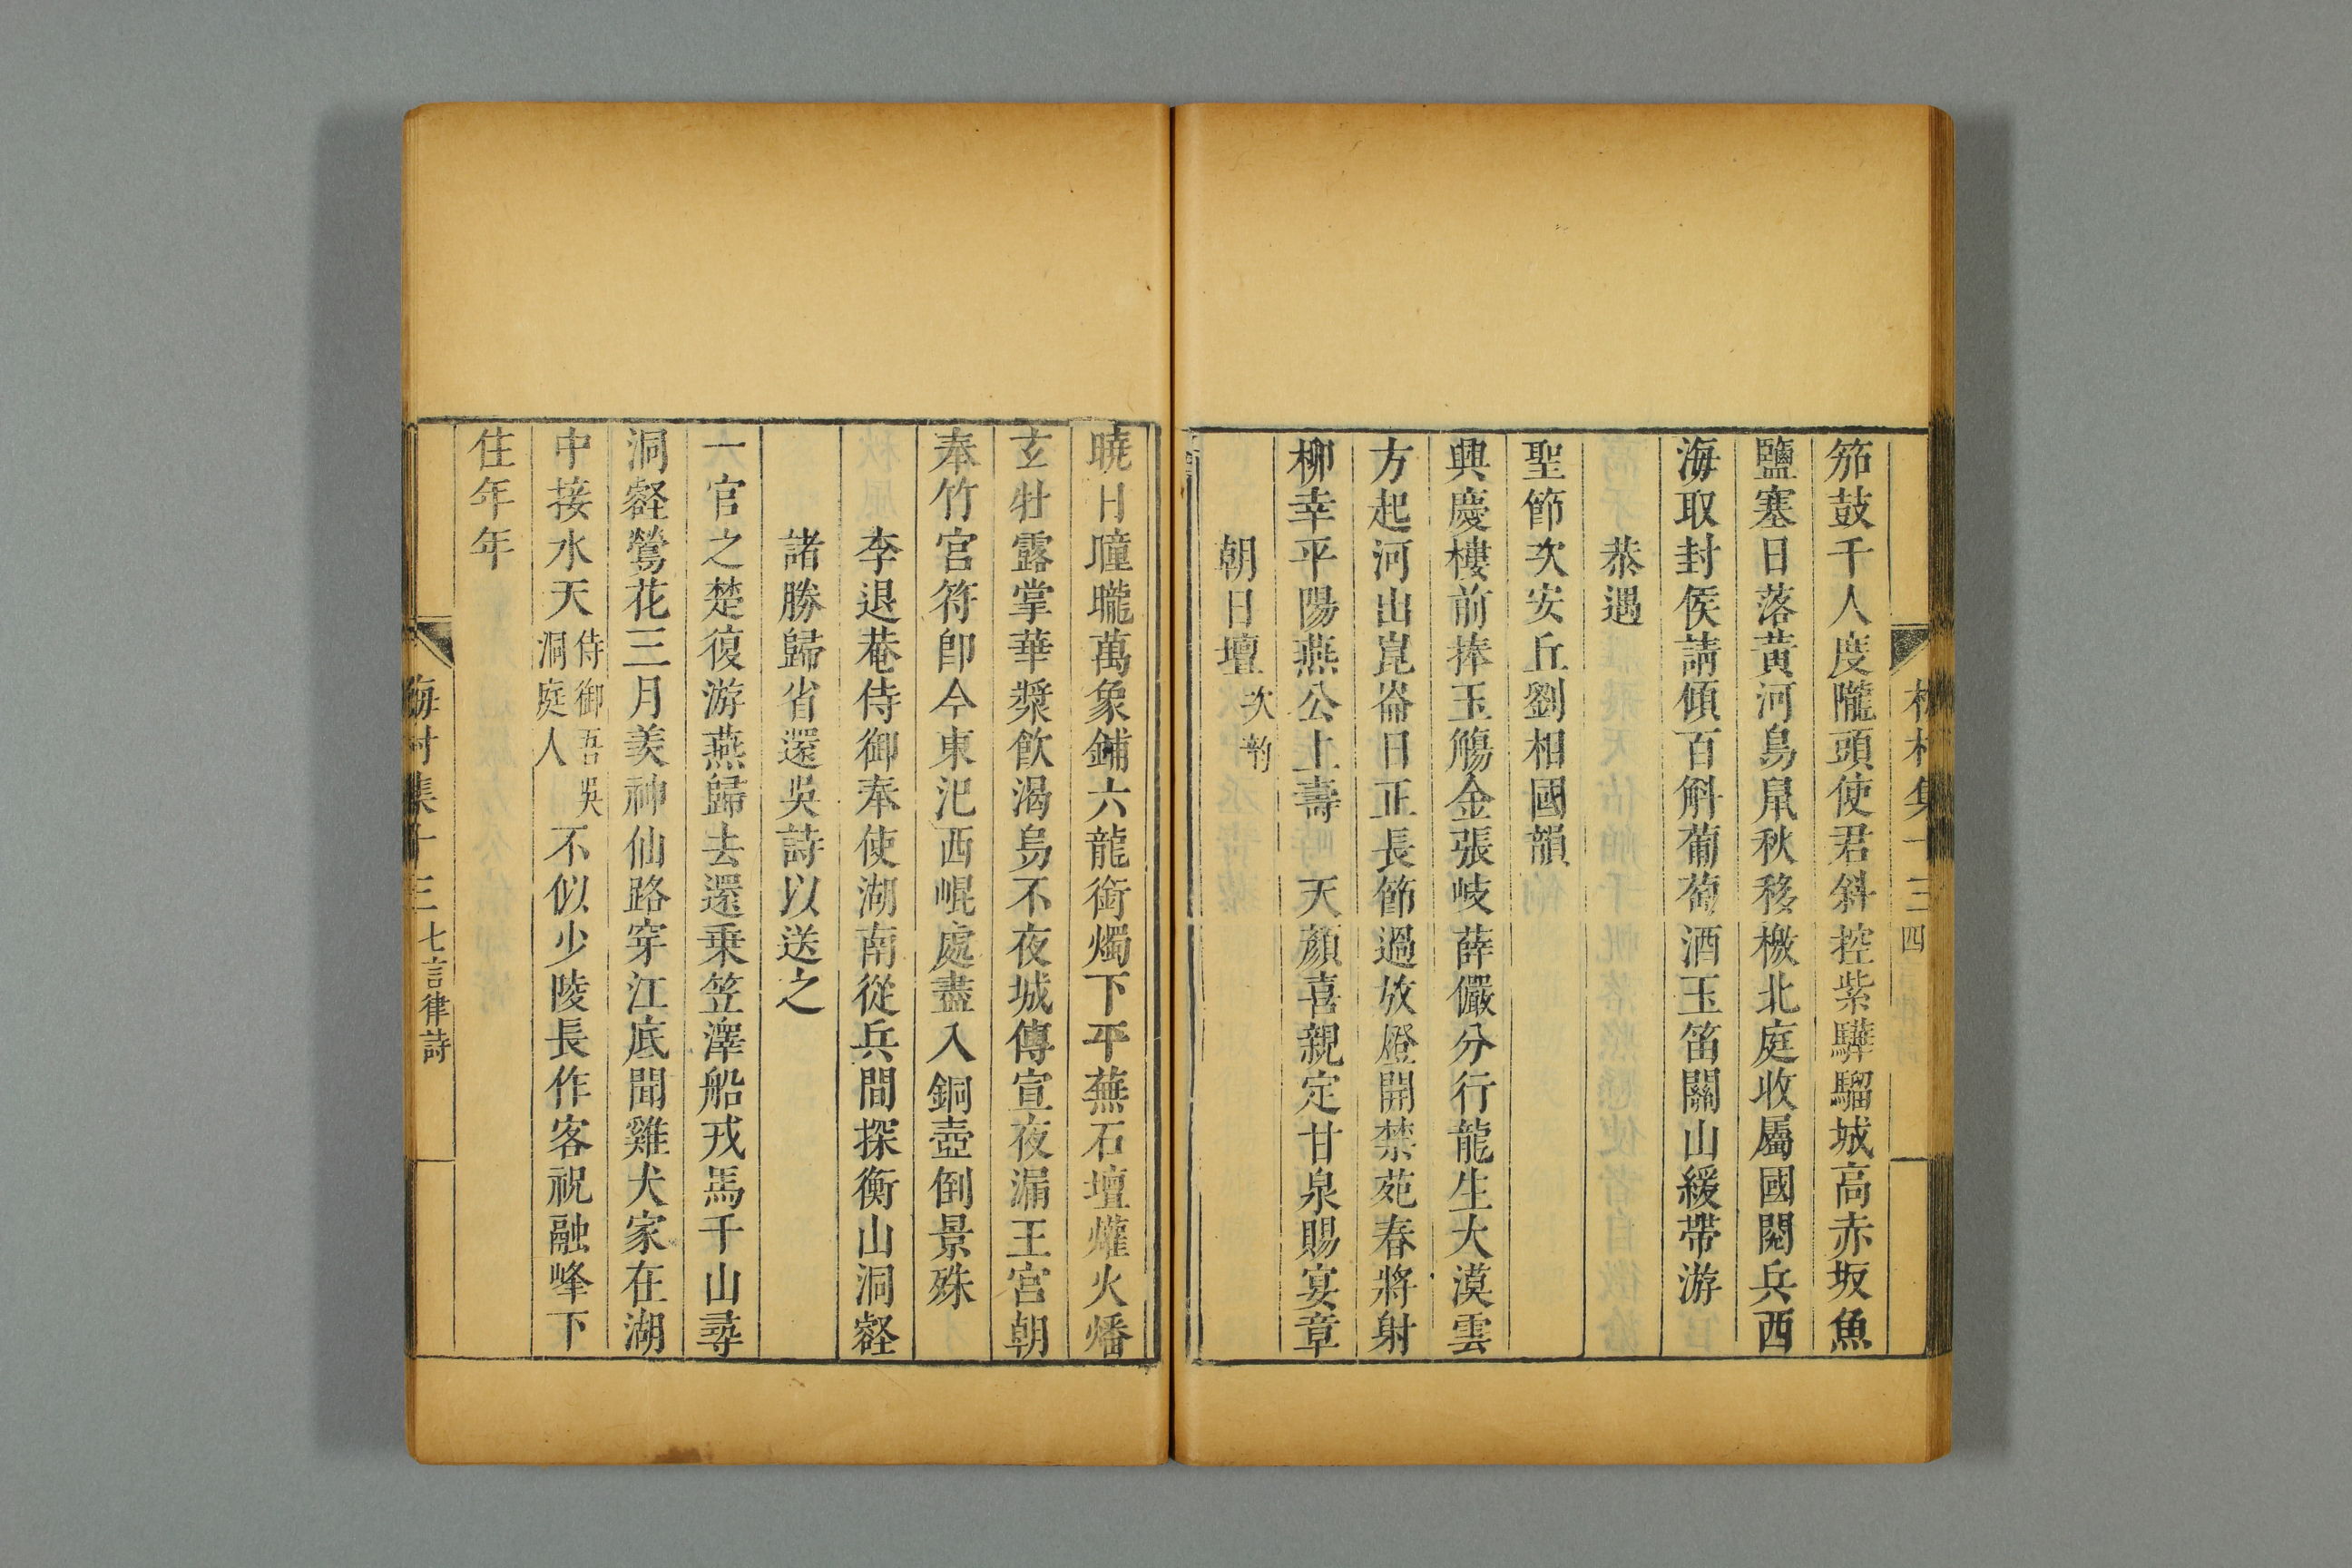 笳鼓千人度隴頭使君斜控紫驊騮城高赤坂魚
鹽塞日落黃河鳥鼠秋移檄北庭收屬國閱兵西
海取封侯請傾百斛葡萄酒玉笛關山緩帶游
恭遇
聖節次安丘劉相國韻
興慶樓前捧玉觴金張岐薛儼分行龍生大漠雲
方起河出崑崙日正長節過放燈開禁苑春將射
柳幸平陽燕公上壽天顏喜親定甘泉賜宴章
朝日壇次韵
曉日曈曨萬象鋪六龍銜燭下平蕪石壇爟火燔
玄牡露掌華槳飲渴烏不夜城傳宣夜漏王宮朝
奉竹宮符卽今東汜西崐處盡入銅壺倒景殊
李退菴侍御奉使湖南從兵間探衡山洞壑
諸勝歸省還吳詩以送之
一官之楚復游燕歸去還乗笠澤船戎馬千山尋
洞壑鶯花三月羨神仙路穿江底聞雞犬家在湖
中接水天侍御吾吳洞庭人不似少陵長作客祝融峰下
住年年
梅村集十三
四
七言律詩